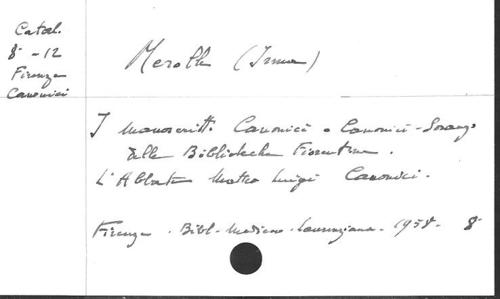 Catal.
8° - 12
Firenze
Canonici
Merolle (Irma)
I manoscritti Canonici e Canonici-Soranzo
delle Biblioteche Fiorentine.
L'Abbate Matteo Luigi Canonici.
Firenze. Bibl. Mediceo-Laurenziana. 1958. 8°